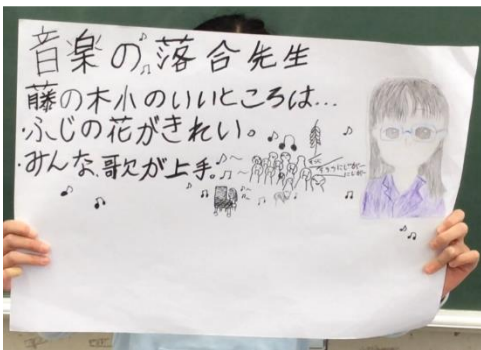 音楽の落合先生
藤の木小のいいところは…
・ふじの花がきれい。
・みんな、歌が上手。